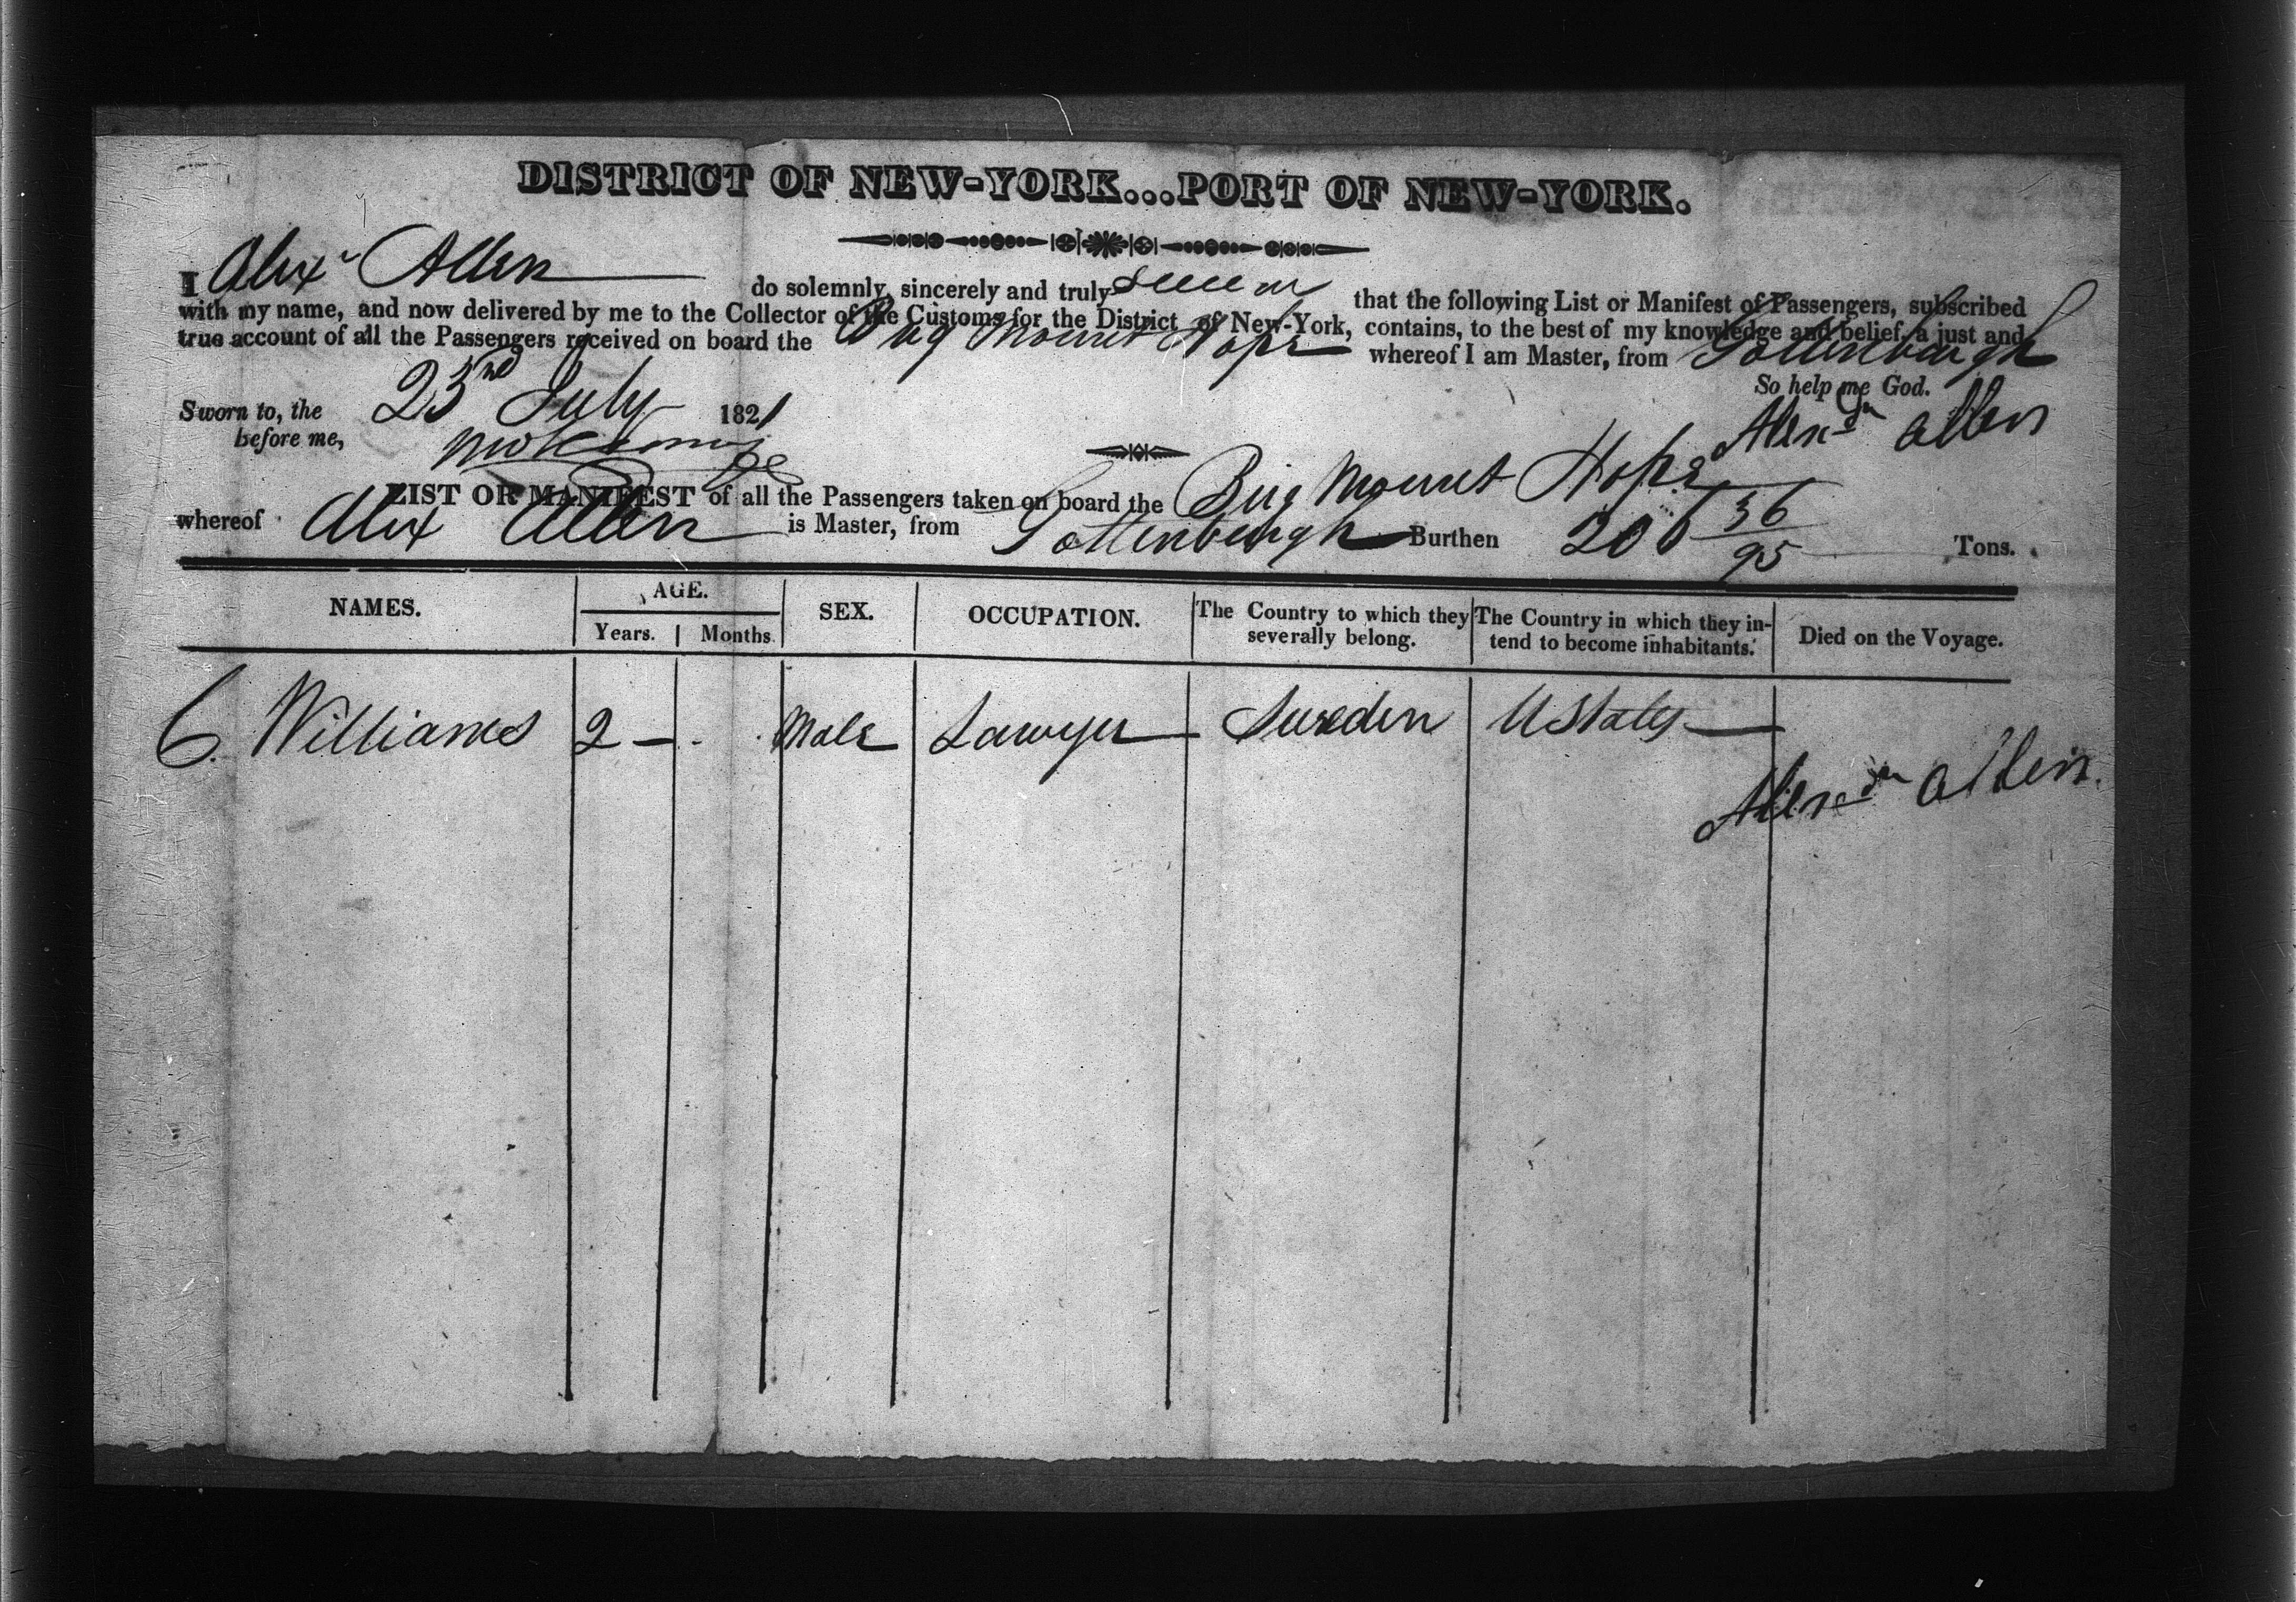 DISTRICT OF NEW-YORK...PORT OF NEW-YORK.
I Alexr Allen do solemnly, sincerely and truly swear that the following List or Manifest of Passengers, subscribed
with my name, and now delivered by me to the Collector of the Customs for the District of New-York, contains, to the best of my knowledge and belief, a just and
true account of all the Passengers received on board the Brig Mount Hope whereof I am Master, from Gottenburgh
So help me God.
Sworn to, the 23rd July 1821
before me,
Alexdr Allen
LIST OR MANIFEST of all the Passengers taken on board the Brig Mount Hope
whereof Alex Allen is Master, from Gottenburgh Burthen 206 36/95 Tons.
NAMES. AGE. SEX. OCCUPATION. The Country to which they severally belong. The Country in which they intend to become inhabitants. Died on the Voyage.
Years. Months.
C. Williams 2 — Male Lawyer Sweden U States
Alexdr Allen.